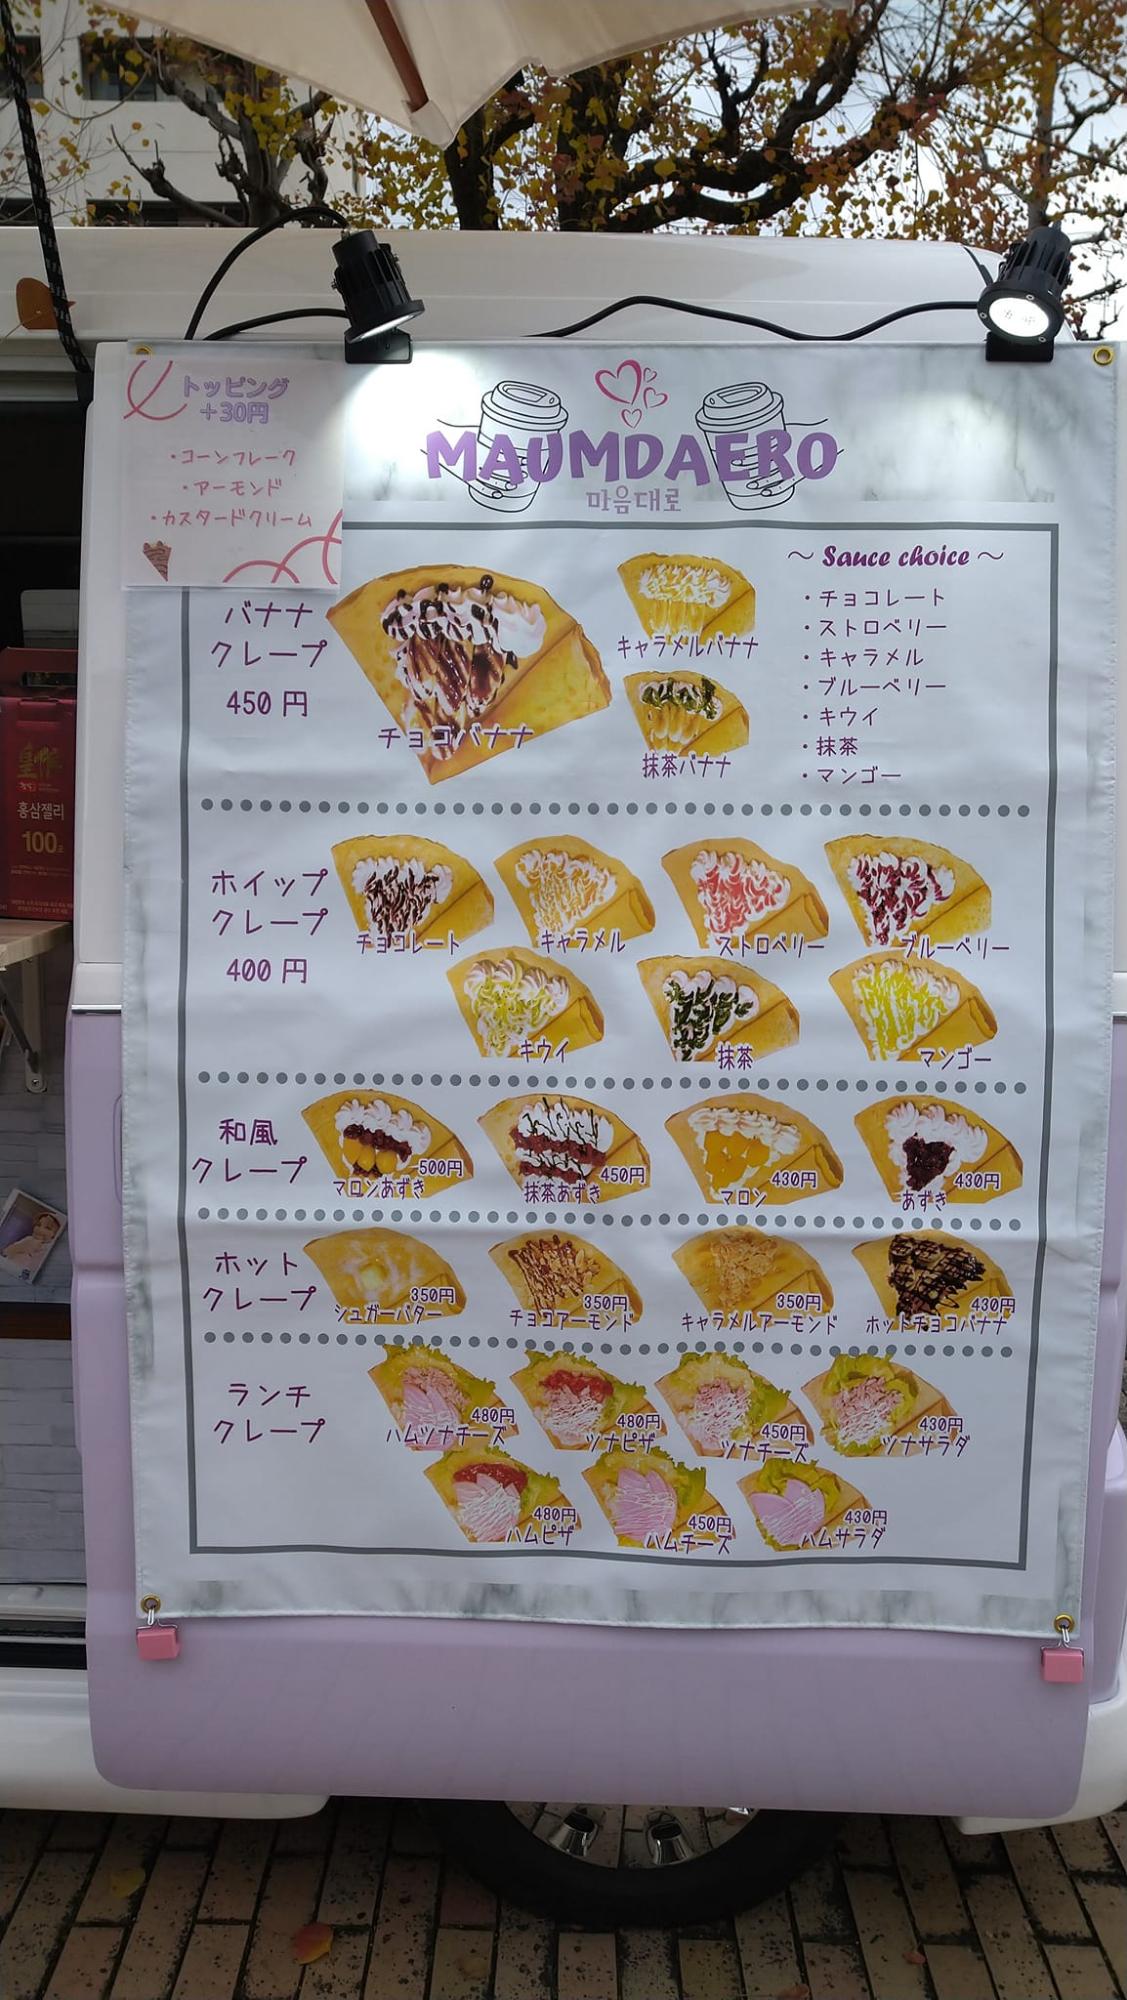 トッピング
+30円
・コーンフレーク
・アーモンド
・カスタードクリーム
MAUMDAERO
마음대로
バナナ
クレープ
450 円
チョコバナナ
キャラメルバナナ
抹茶バナナ
～ Sauce choice ～
・チョコレート
・ストロベリー
・キャラメル
・ブルーベリー
・キウイ
・抹茶
・マンゴー
ホイップ
クレープ
400 円
チョコレート
キャラメル
ストロベリー
ブルーベリー
キウイ
抹茶
マンゴー
和風
クレープ
500円
マロンあずき
450円
抹茶あずき
430円
マロン
430円
あずき
ホット
クレープ
350円
シュガーバター
350円
チョコアーモンド
350円
キャラメルアーモンド
430円
ホットチョコバナナ
ランチ
クレープ
480円
ハムツナチーズ
480円
ツナピザ
450円
ツナチーズ
430円
ツナサラダ
480円
ハムピザ
450円
ハムチーズ
430円
ハムサラダ
홍삼젤리
100